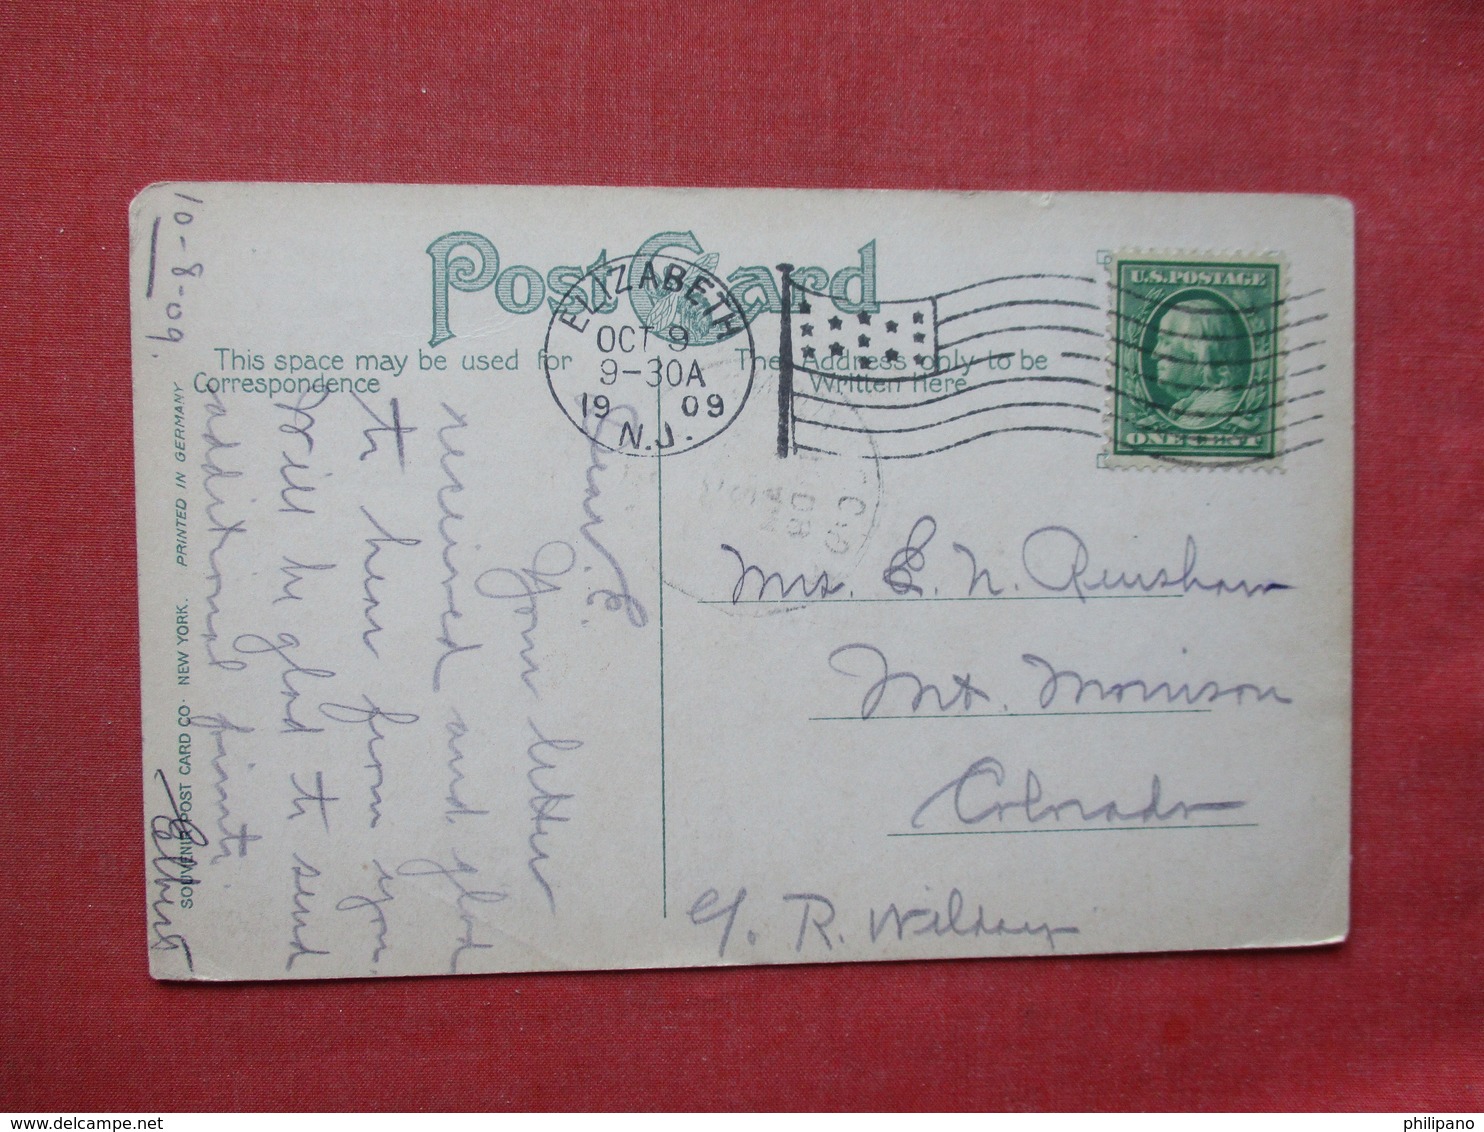 Post Card
This space may be used for
Correspondence
The Address only to be
Written Here
ELIZABETH
OCT 9
9-30A
19 09
N.J.
U.S. POSTAGE
ONE CENT
PRINTED IN GERMANY
SOUVENIR POST CARD CO. NEW YORK.
10-8-09.
Dear E.
Your letter
received and glad
to hear from you
Will be glad to send
additional prints.
Elbert
Mrs. E. N. Renshaw
Mt. Morrison
Colorado
c/. R.
COLO
philipano